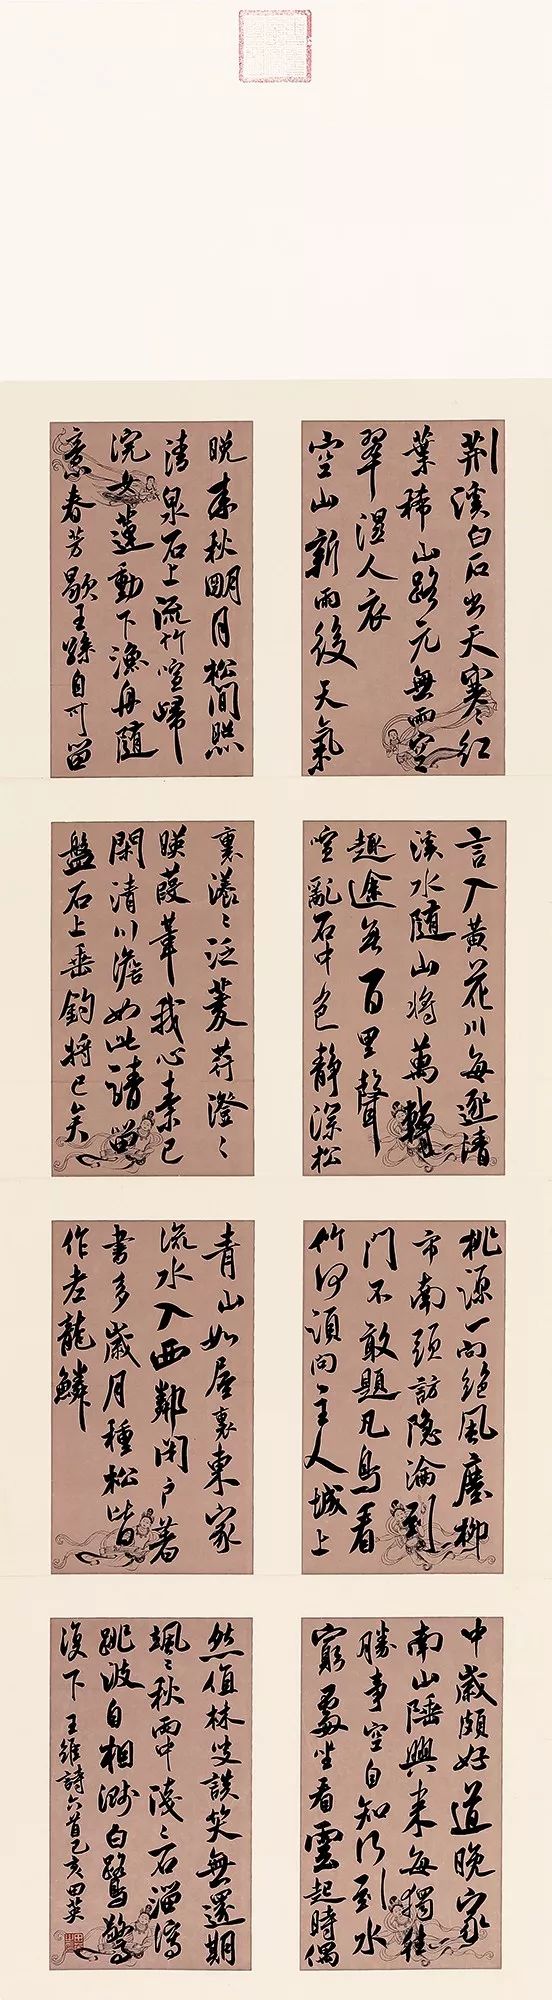 荆溪白石出天寒紅
葉稀山路元無雨空
翠濕人衣
空山新雨後天氣
晚来秋明月松間照
清泉石上流竹喧歸
浣女蓮動下漁舟隨
意春芳歇王孫自可留
言入黄花川每逐清
溪水隨山將萬轉
趣途無百里聲
喧亂石中色静深松
裏漾々泛菱荇澄々
映葭葦我心素已
閑清川澹如此請留
盤石上垂釣將已矣
桃源一向絶風塵柳
市南頭訪隐淪到
門不敢題凡鳥看
竹何須問主人城上
青山如屋裏東家
流水入西鄰閉户著
書多歲月種松皆
作老龍鱗
中歲頗好道晚家
南山陲興来每獨往
勝事空自知行到水
窮處坐看雲起時偶
然值林叟談笑無還期
颯々秋雨中淺々石溜瀉
跳波自相濺白鷺驚
復下 王維詩六首己亥田英